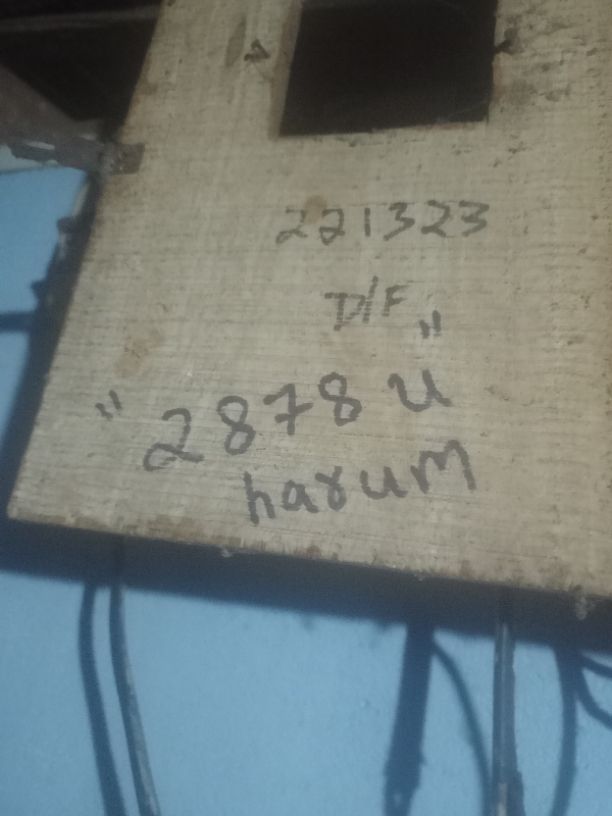 221323
D/F
"2878u"
harum